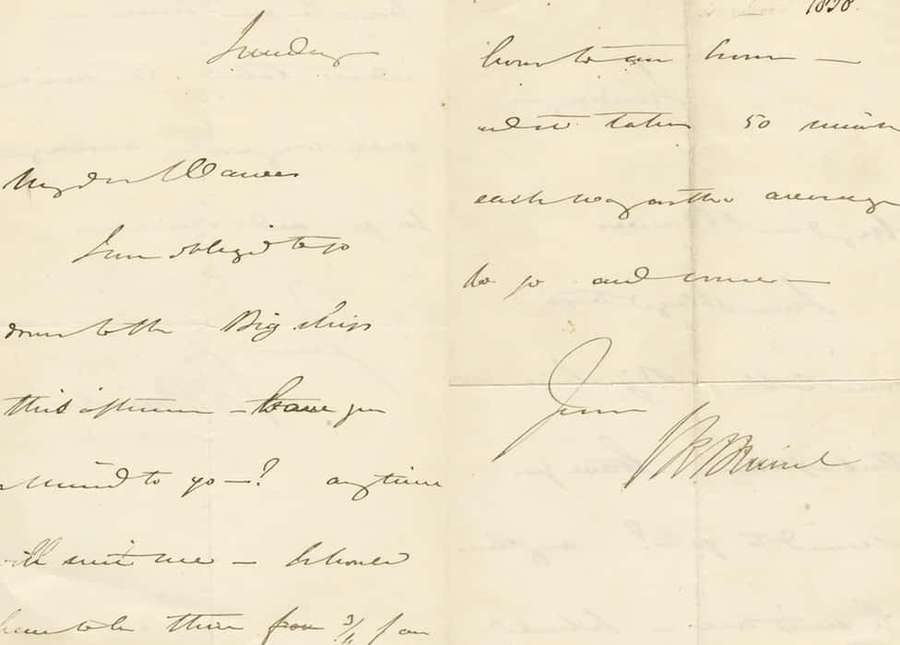 Sunday
My dear Wances
I am obliged to go
down to the Big ship
this afternoon – have you
a mind to go – ? any time
will suit me – I should
have to be there for 3/4 of an
1858.
hour to an hour –
and it takes 50 minutes
each way on the average
to go and come –
Yours
I K Brunel